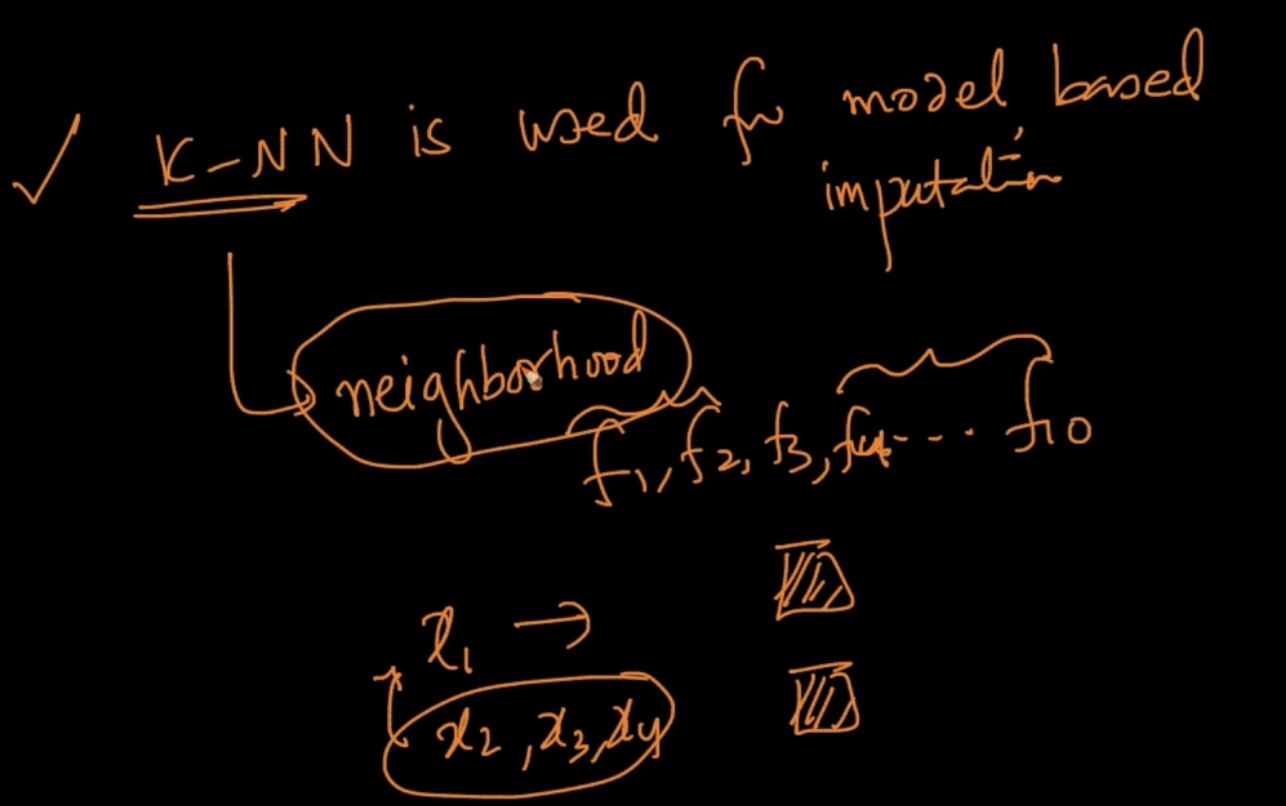 ✓ K-NN is used for model based
imputation
neighborhood
f1, f2, f3, f4, --- f10
x1 →
x2, x3, x4